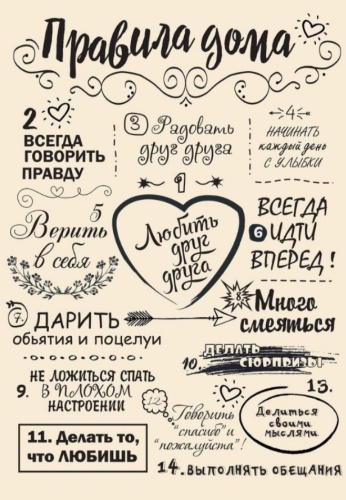 Правила дома
2
ВСЕГДА
ГОВОРИТЬ
ПРАВДУ
3 Радовать
друг друга
4
НАЧИНАТЬ
каждый день
С УЛЫБКИ
1
Любить
друг
друга
5
Верить
в себя
ВСЕГДА
6 ИДТИ
ВПЕРЕД!
7. ДАРИТЬ
обьятия и поцелуи
8. Много
смеяться
НЕ ЛОЖИТЬСЯ СПАТЬ
9. В ПЛОХОМ
НАСТРОЕНИИ
10. ДЕЛАТЬ
СЮРПРИЗЫ
11. Делать то,
что ЛЮБИШЬ
12. Говорить
"спасибо" и
"пожалуйста"!
13.
Делиться
своими
мыслями
14. ВЫПОЛНЯТЬ ОБЕЩАНИЯ